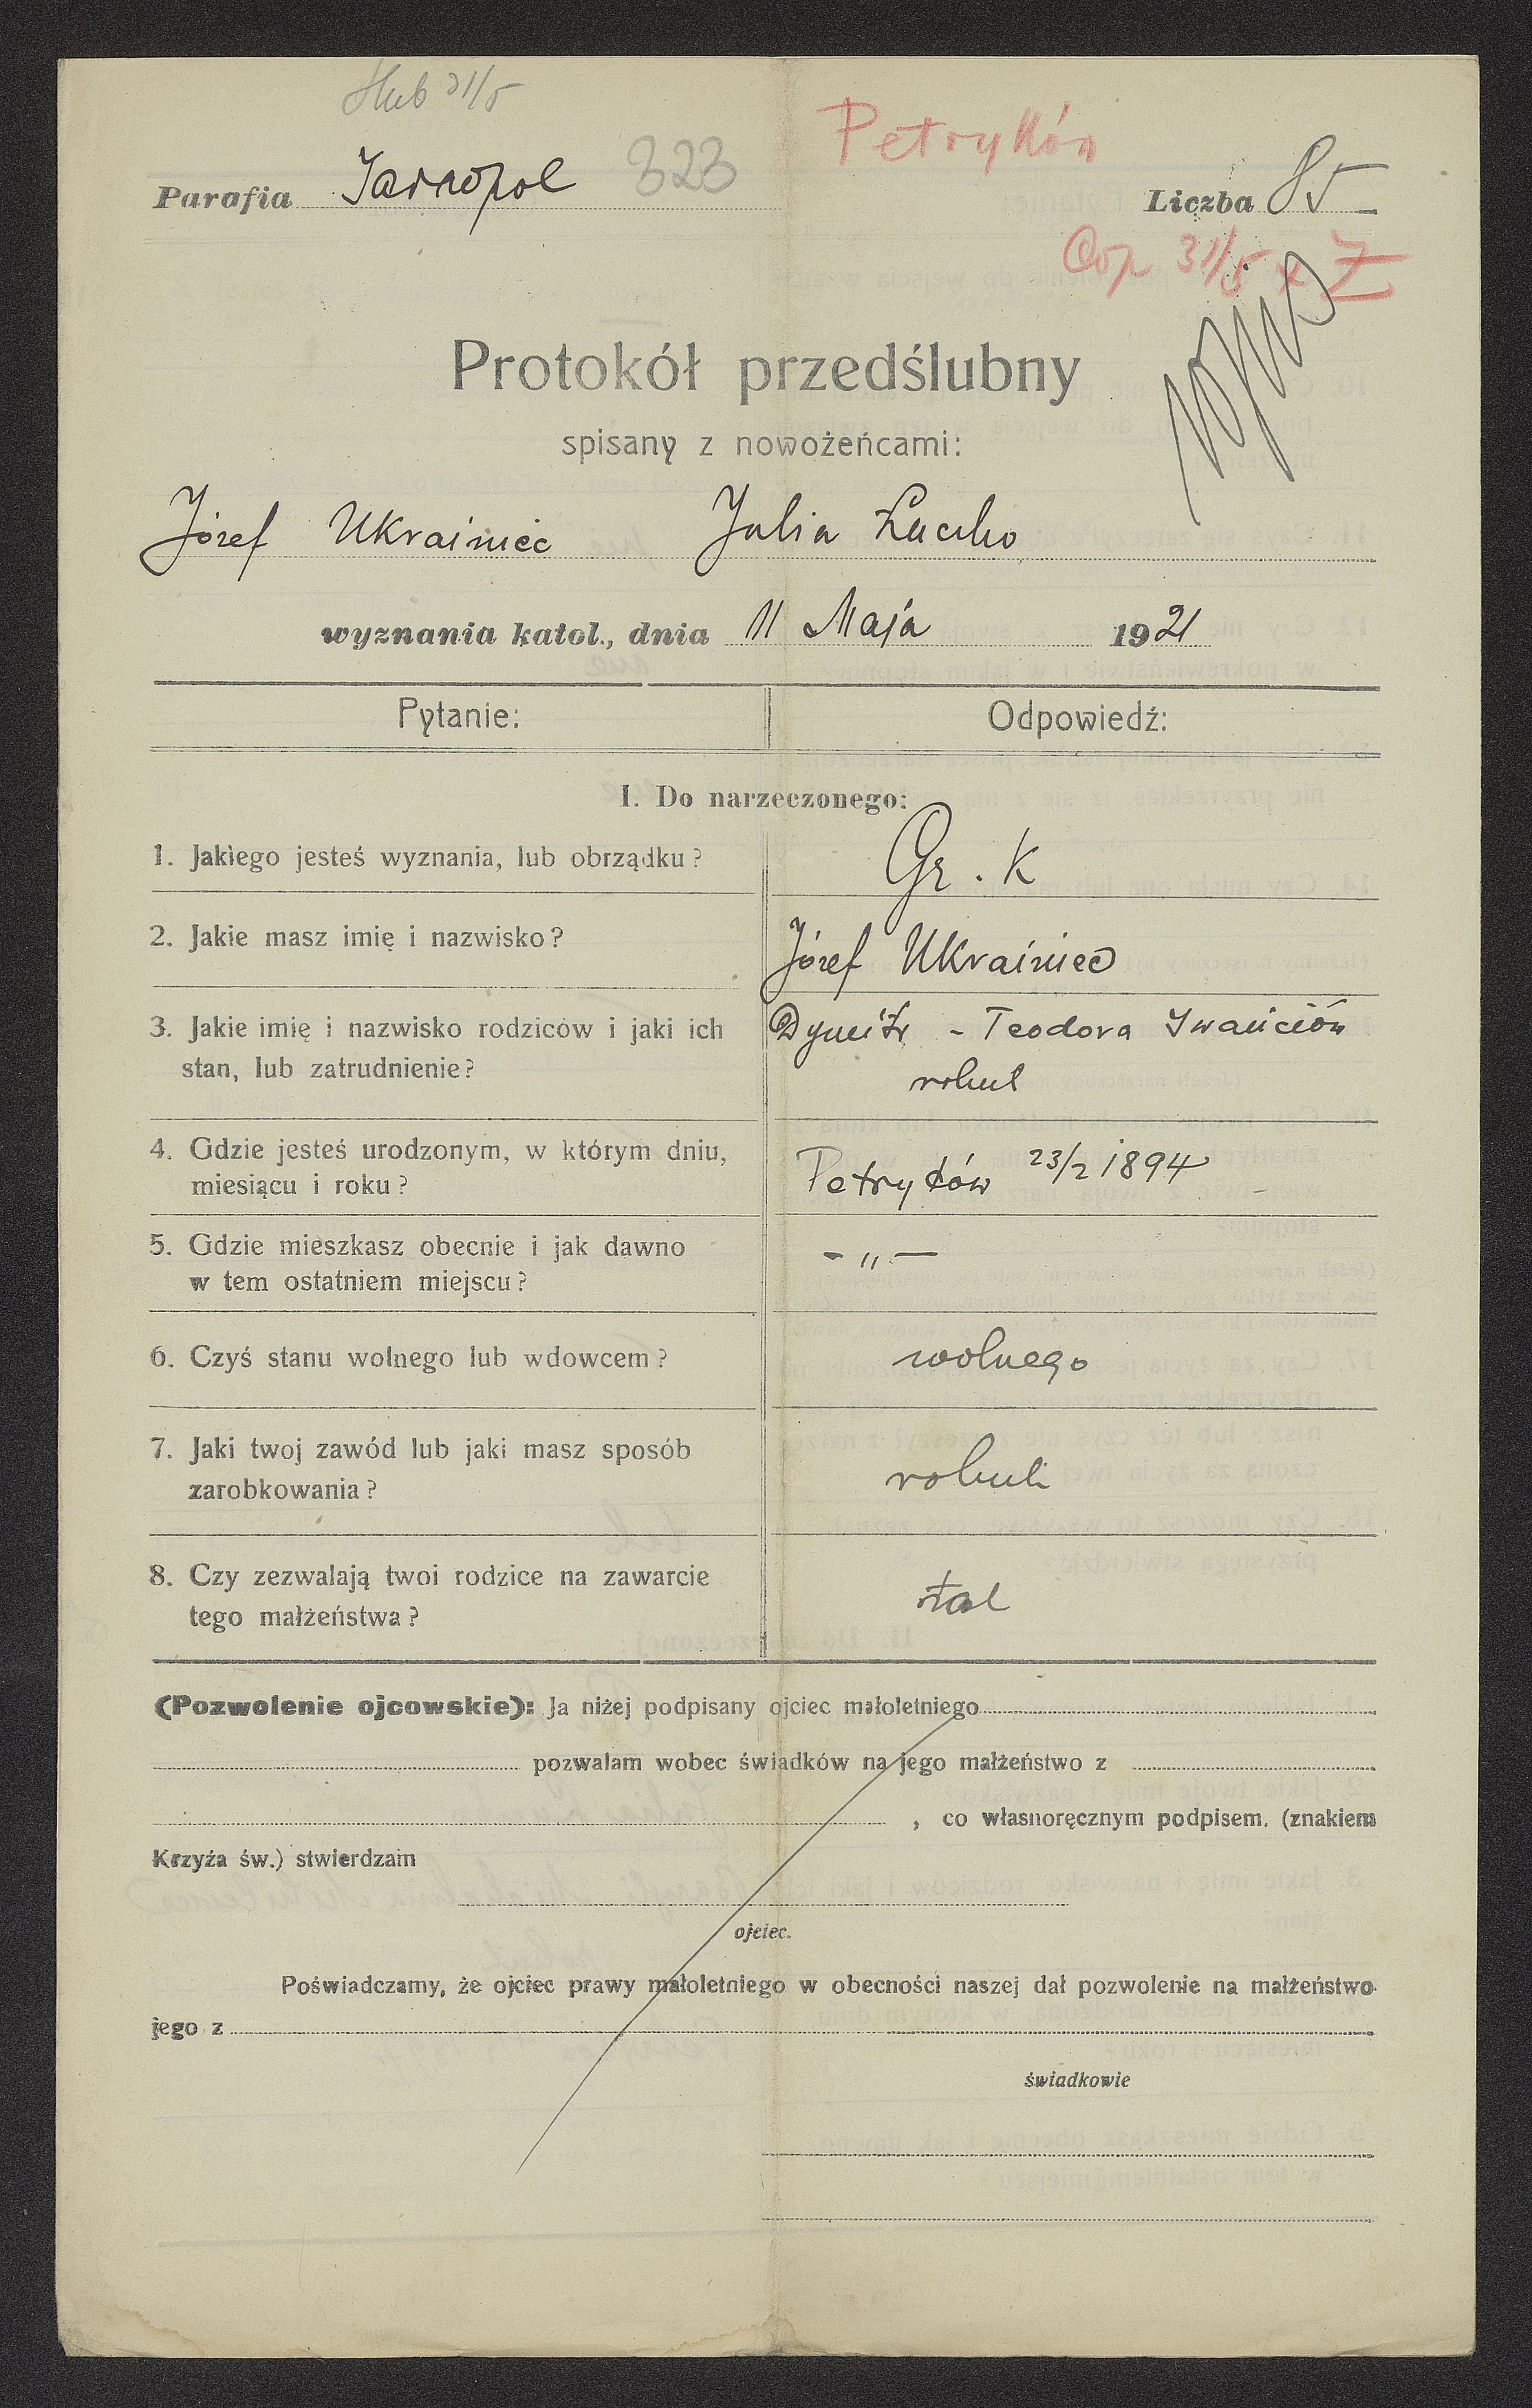 Ślub 31/5
Petryków
Parafia Tarnopol 323 Liczba 85
Cop 31/5
Protokół przedślubny
spisany z nowożeńcami:
Józef Ukrainiec Julia
wyznania katol., dnia 11 Maja 1921
Pytanie: Odpowiedź:
I. Do narzeczonego:
1. Jakiego jesteś wyznania, lub obrządku? Gr. K
2. Jakie masz imię i nazwisko? Józef Ukrainiec
3. Jakie imię i nazwisko rodziców i jaki ich Dymitr - Teodora
stan, lub zatrudnienie?
4. Gdzie jesteś urodzonym, w którym dniu,
miesiącu i roku? Petryków 23/2 1894
5. Gdzie mieszkasz obecnie i jak dawno - " -
w tem ostatniem miejscu?
6. Czyś stanu wolnego lub wdowcem? wolnego
7. Jaki twoj zawód lub jaki masz sposób
zarobkowania?
8. Czy zezwalają twoi rodzice na zawarcie
tego małżeństwa?
(Pozwolenie ojcowskie): Ja niżej podpisany ojciec małoletniego
pozwalam wobec świadków na jego małżeństwo z
, co własnoręcznym podpisem. (znakiem
Krzyża św.) stwierdzam
ojciec.
Poświadczamy, że ojciec prawy małoletniego w obecności naszej dał pozwolenie na małżeństwo
jego z
świadkowie